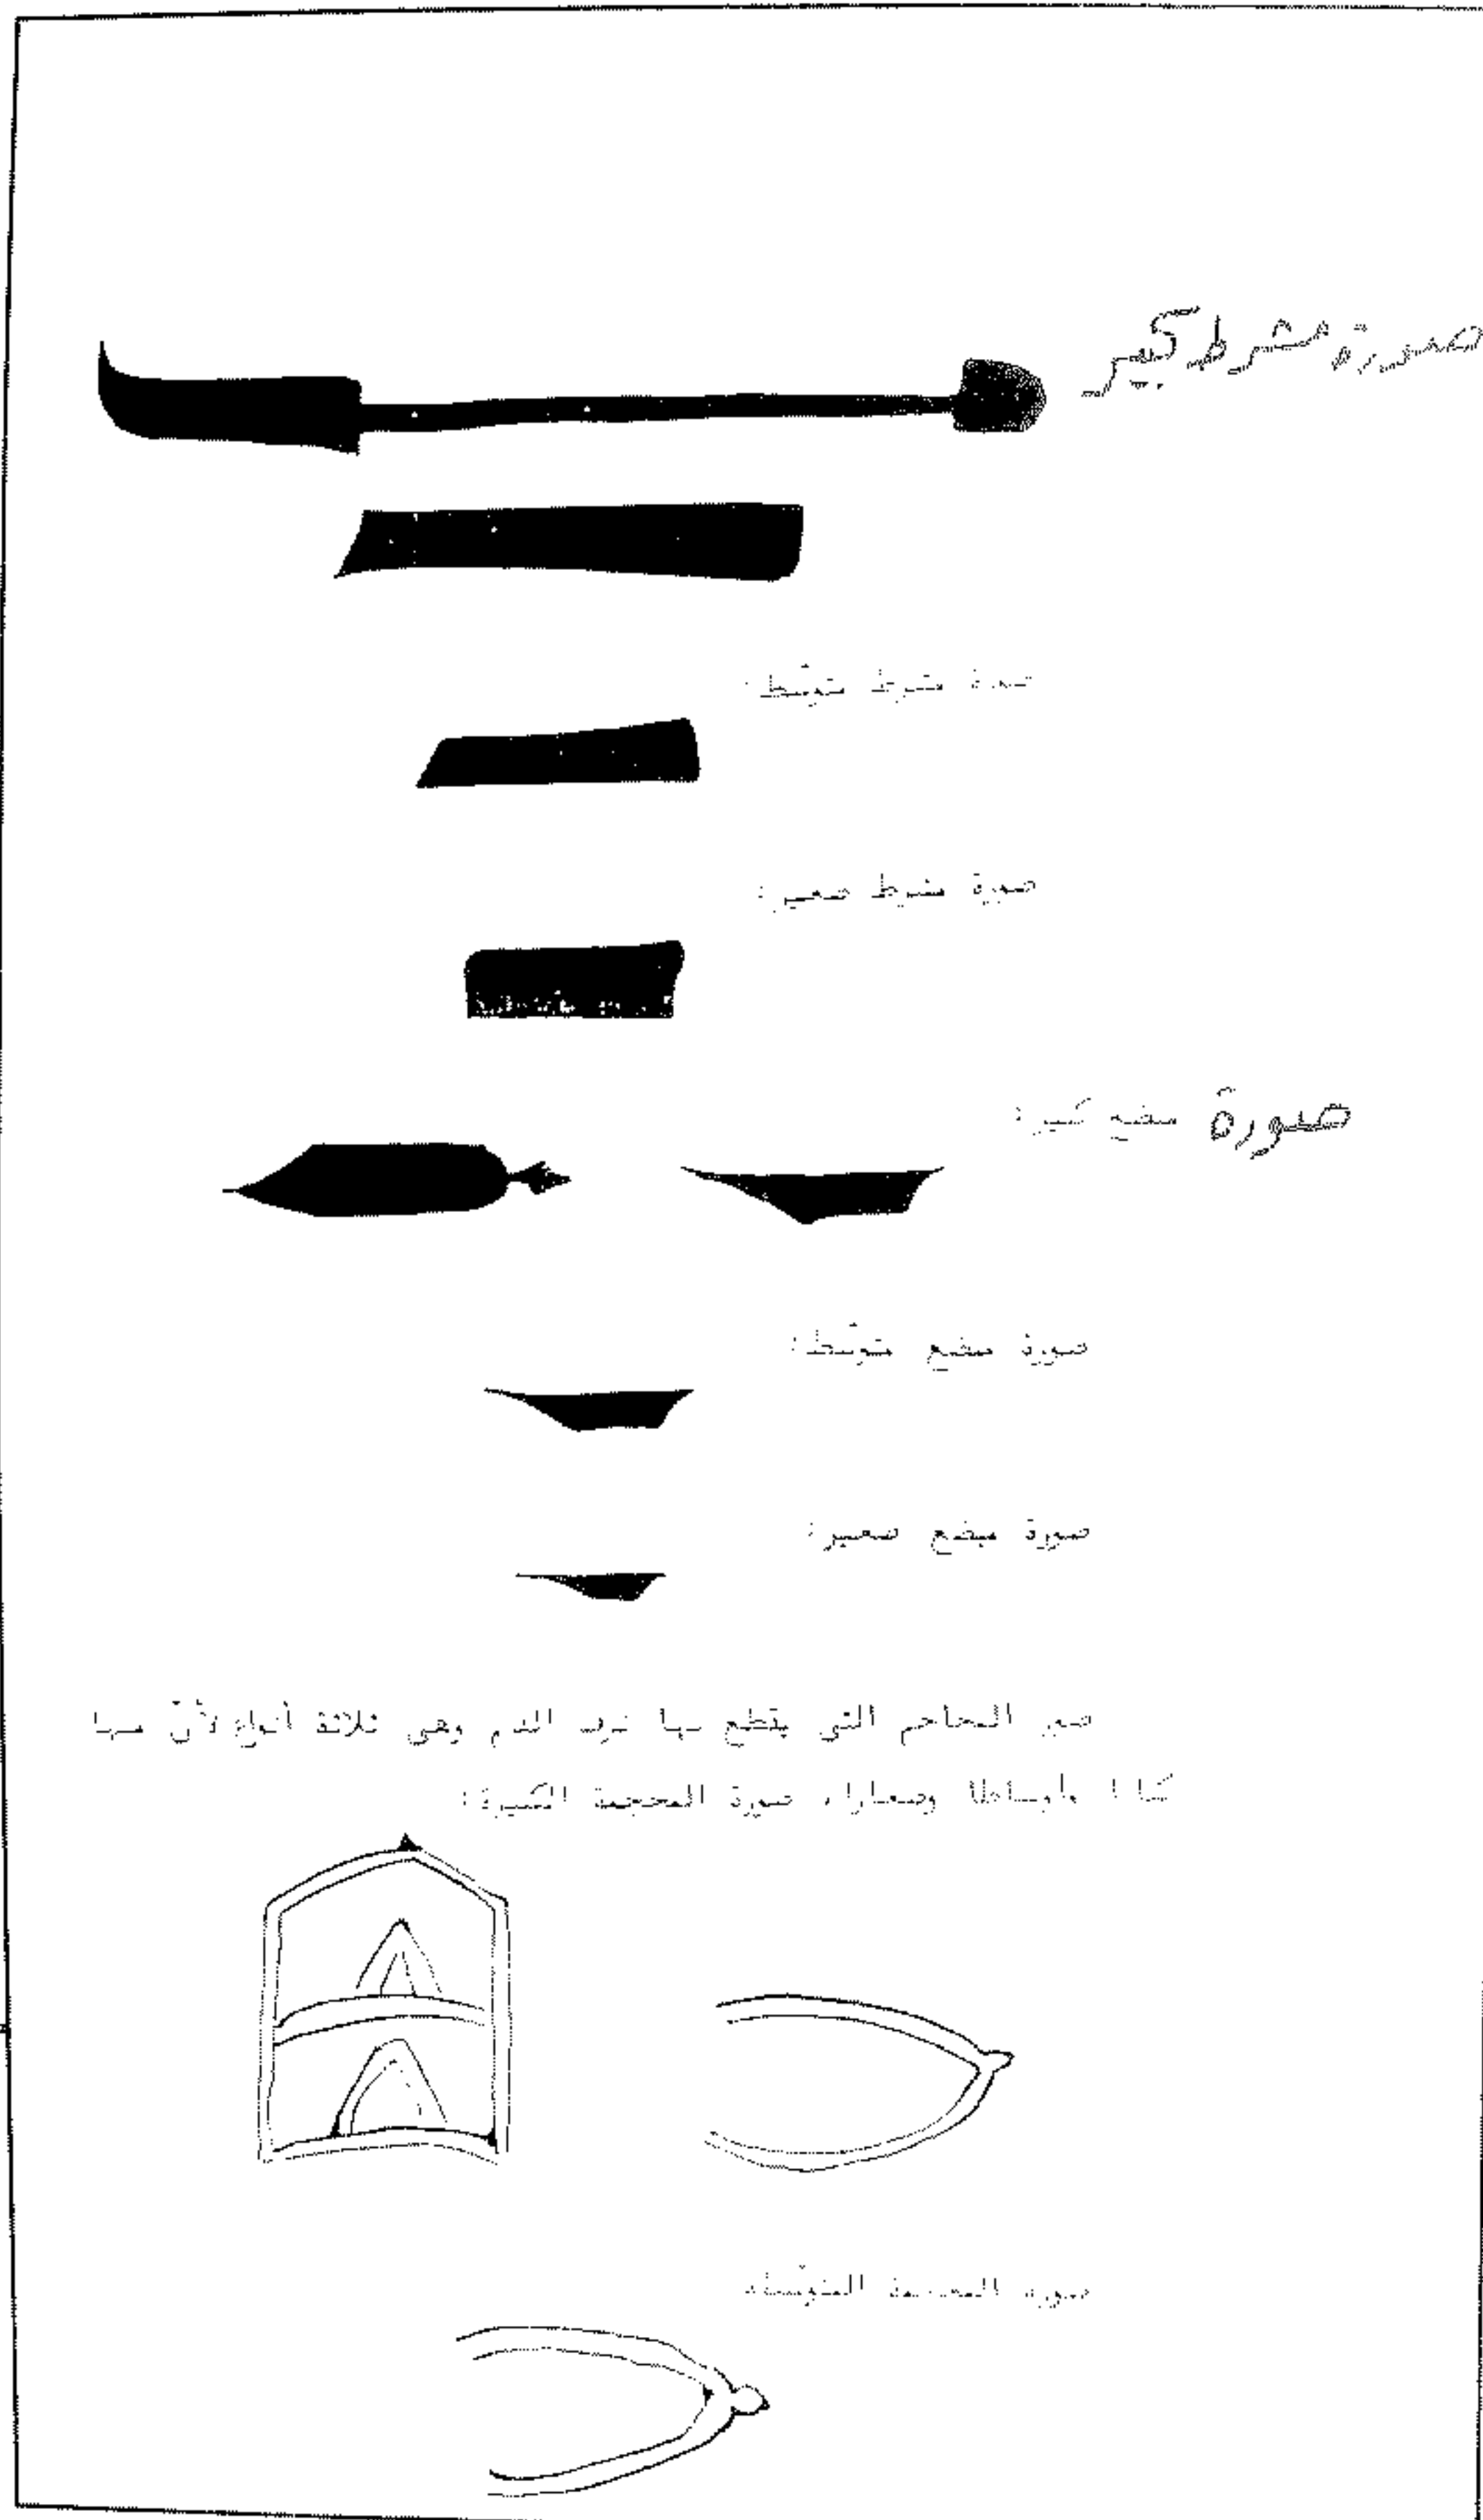 صورة مشرط كبير
صورة مشرط متوسّط:
صورة مشرط صغير:
صورة مبضع كبير:
صورة مبضع متوسّط:
صورة مبضع صغير:
صور المحاجم التي يقطع بها نزف الدم وهي ثلاثة أنواع لأنّ منها
كبارا وأوساطا وصغارا، صورة المحجمة الكبيرة:
صورة المحجمة المتوسّطة